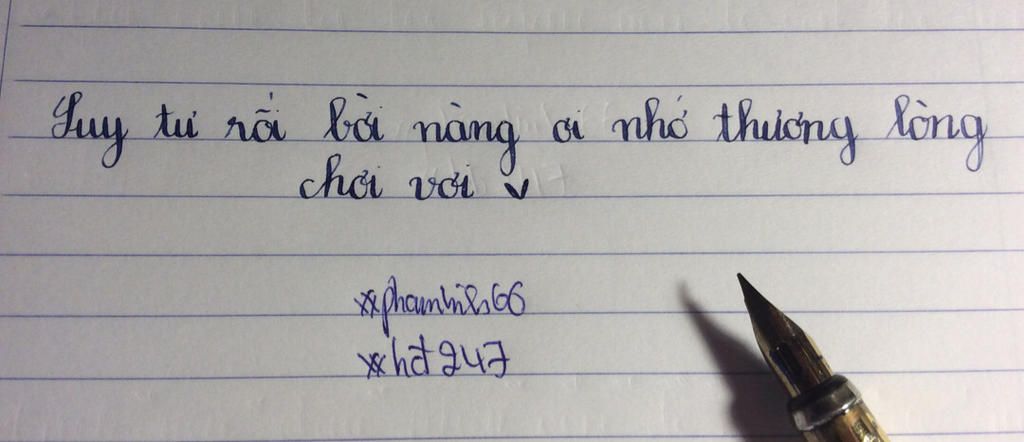 Suy tư rối bời nàng ơi nhớ thương lòng
chơi vơi v
hđ247